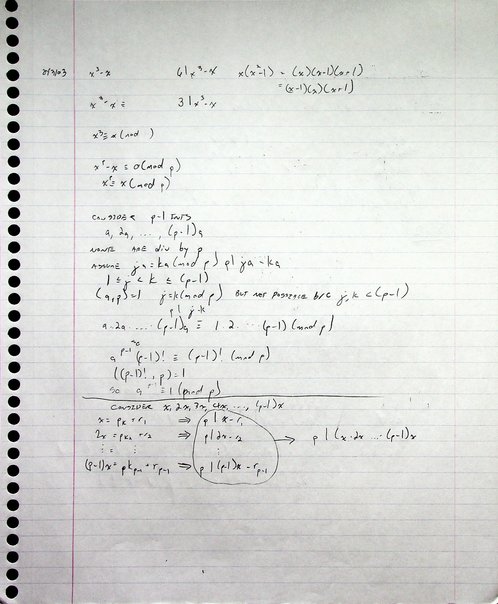 8/3/03 x³-x 6|x³-x x(x²-1) = (x)(x-1)(x+1)
= (x-1)(x)(x+1)
3|x³-x
x³ ≡ x (mod )
xᵖ-x ≡ 0 (mod p)
xᵖ ≡ x (mod p)
CONSIDER p-1 INTS
a, 2a, ..., (p-1)a
NONE ARE div by p
ASSUME ja ≡ ka (mod p) p| ja - ka
1 ≤ j < k ≤ (p-1)
(a,p)=1 j≡k (mod p) BUT NOT POSSIBLE B/C j,k < (p-1)
p | j-k
a·2a ..... (p-1)a ≡ 1·2 ... (p-1) (mod p)
so
aᵖ⁻¹ (p-1)! ≡ (p-1)! (mod p)
((p-1)!, p) = 1
SO aᵖ⁻¹ ≡ 1 (mod p)
CONSIDER x, 2x, 3x, 4x, ..., (p-1)x
x = pk₁ + r₁ ⇒ p | x - r₁
2x = pk₂ + r₂ ⇒ p | 2x - r₂ → p | (x·2x ... (p-1)x
⋮ = ⋮ ⋮
(p-1)x = pkₚ₋₁ + rₚ₋₁ ⇒ p | (p-1)x - rₚ₋₁